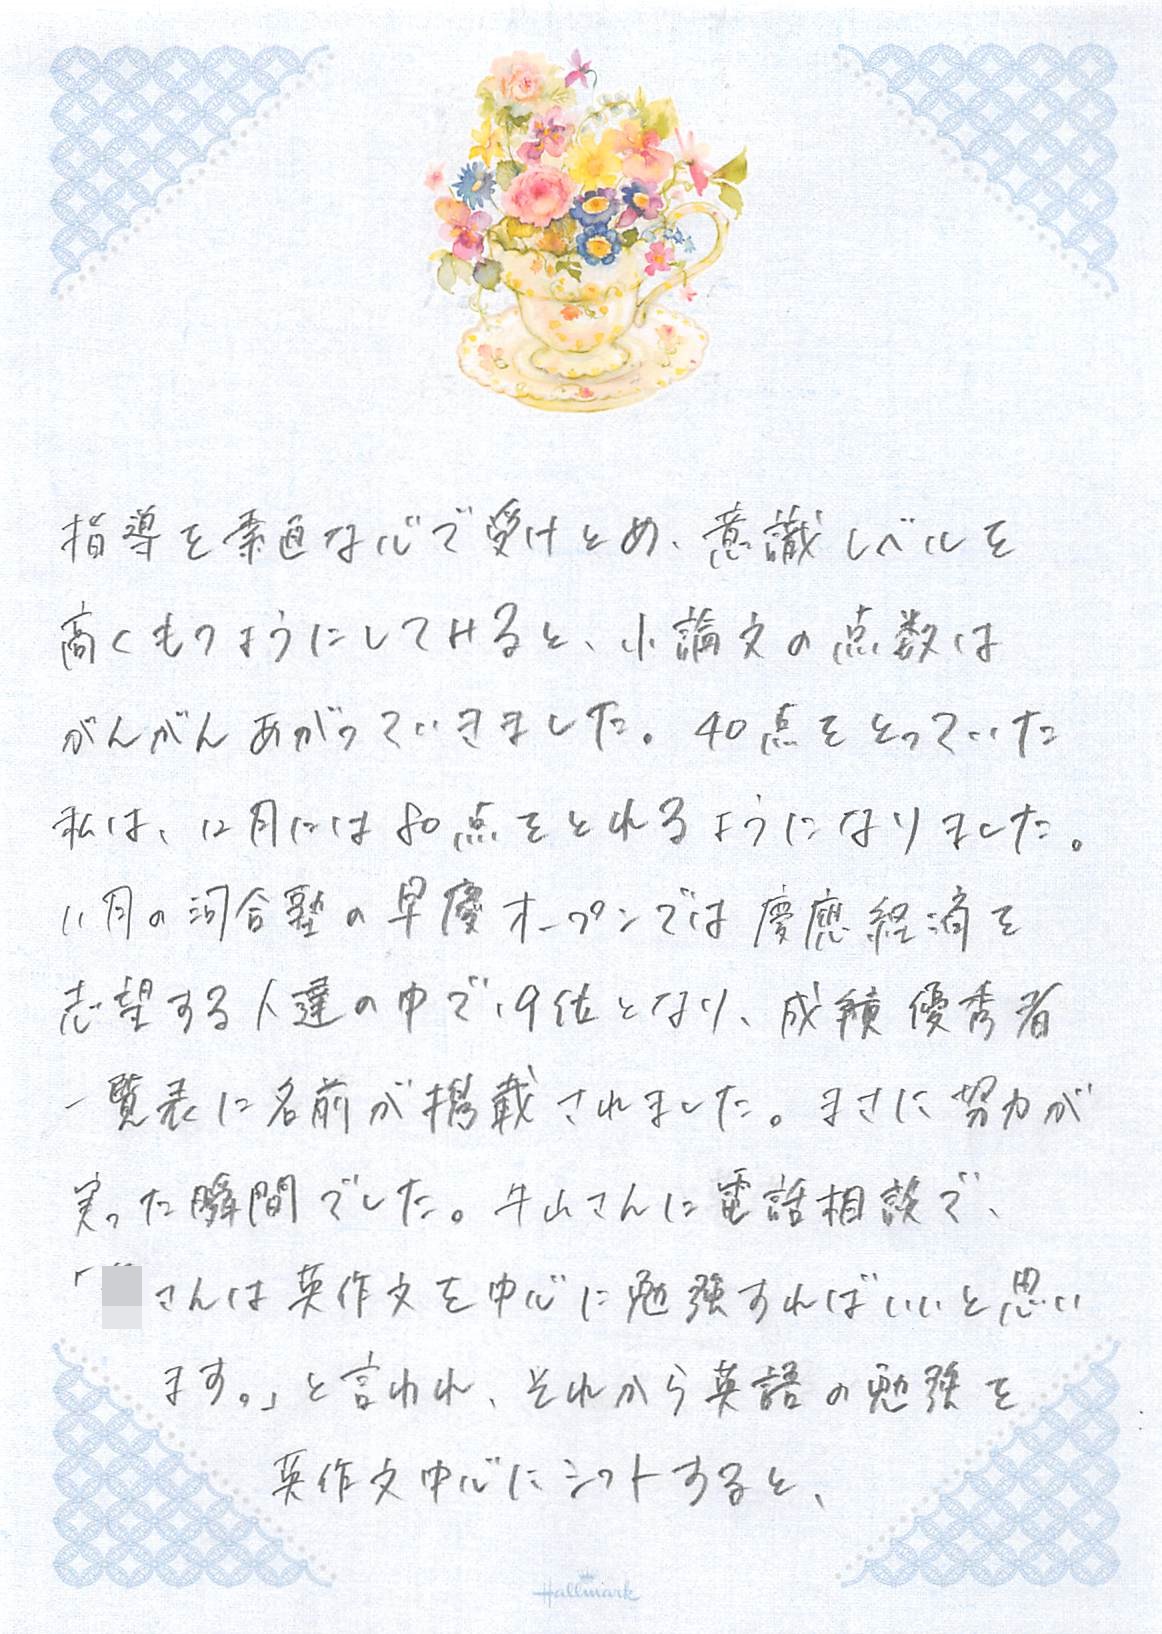 指導を素直な心で受けとめ、意識レベルを
高くもつようにしてみると、小論文の点数は
がんがんあがっていきました。40点をとっていた
私は、12月には80点をとれるようになりました。
11月の河合塾の早慶オープンでは慶應経済を
志望する人達の中で19位となり、成績優秀者
一覧表に名前が掲載されました。まさに努力が
実った瞬間でした。牛山さんに電話相談で、
「さんは英作文を中心に勉強すればいいと思い
ます。」と言われ、それから英語の勉強を
英作文中心にシフトすると、
Hallmark